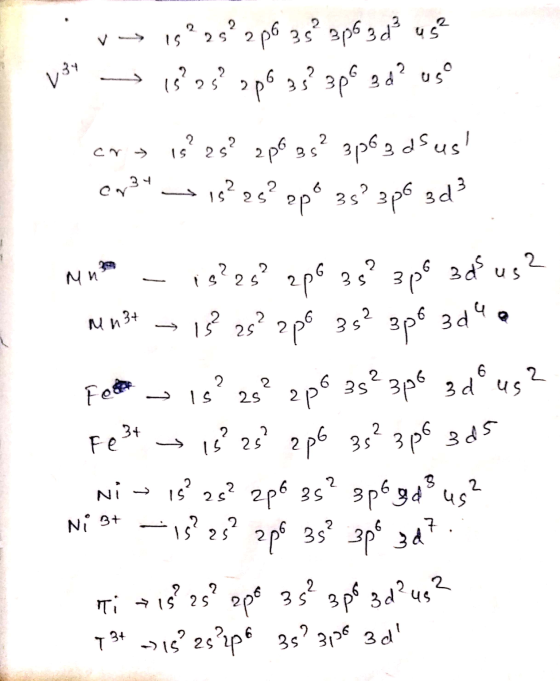 V → 1s² 2s² 2p⁶ 3s² 3p⁶ 3d³ 4s²
V³⁺ → 1s² 2s² 2p⁶ 3s² 3p⁶ 3d² 4s⁰
Cr → 1s² 2s² 2p⁶ 3s² 3p⁶ 3d⁵ 4s¹
Cr³⁺ → 1s² 2s² 2p⁶ 3s² 3p⁶ 3d³
Mn — 1s² 2s² 2p⁶ 3s² 3p⁶ 3d⁵ 4s²
Mn³⁺ → 1s² 2s² 2p⁶ 3s² 3p⁶ 3d⁴
Fe → 1s² 2s² 2p⁶ 3s² 3p⁶ 3d⁶ 4s²
Fe³⁺ → 1s² 2s² 2p⁶ 3s² 3p⁶ 3d⁵
Ni → 1s² 2s² 2p⁶ 3s² 3p⁶ 3d⁸ 4s²
Ni³⁺ — 1s² 2s² 2p⁶ 3s² 3p⁶ 3d⁷.
Ti → 1s² 2s² 2p⁶ 3s² 3p⁶ 3d² 4s²
T³⁺ → 1s² 2s² 2p⁶ 3s² 3p⁶ 3d¹